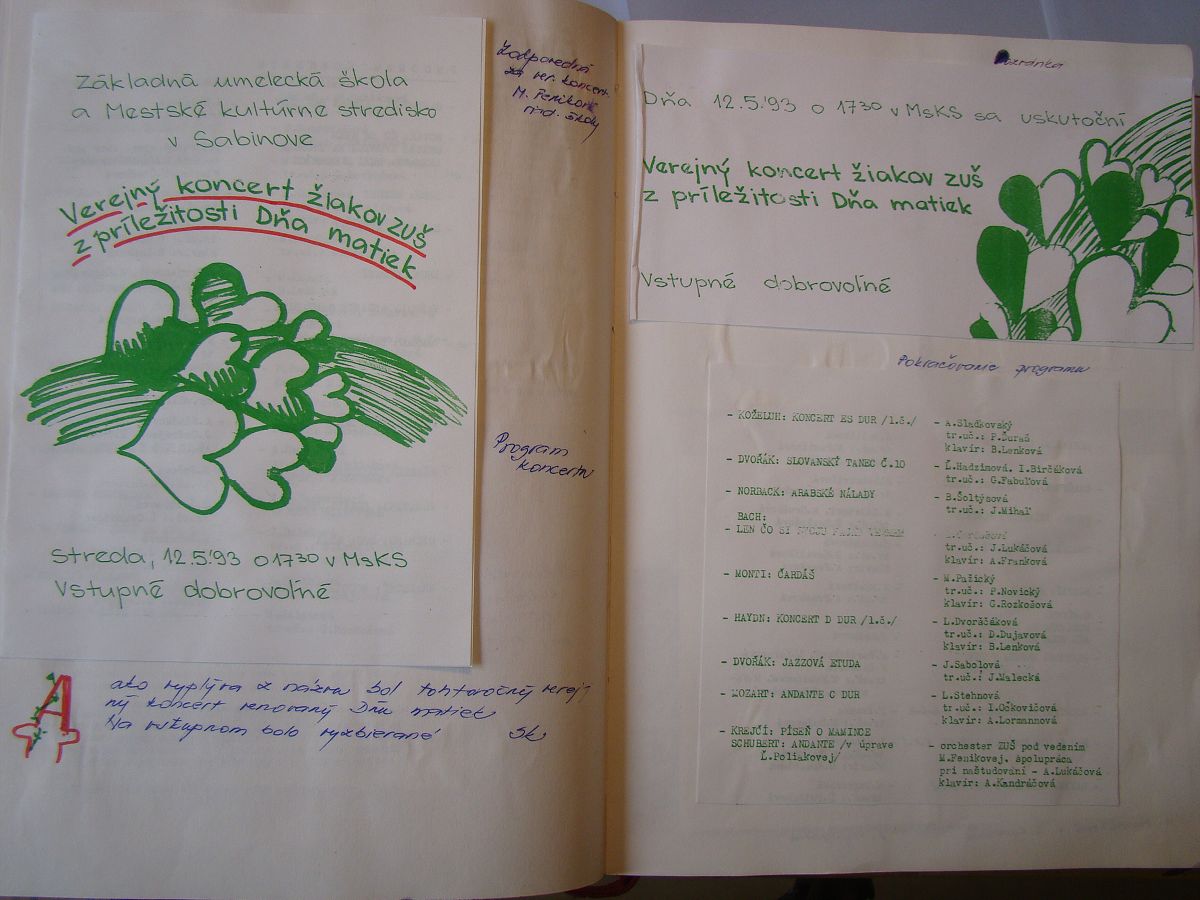 Základná umelecká škola
a Mestské kultúrne stredisko
v Sabinove
Verejný koncert žiakov ZUŠ
z príležitosti Dňa matiek
Streda, 12.5.'93 o 17 30 v MsKS
Vstupné dobrovoľné
ako vyplýva z názvu bol tohtoročný verej
ný koncert venovaný Dňu matiek
Na vstupnom bolo vyzbierané Sk
Zodpovedná
za ver. koncert
riad. školy
Program
koncertu
Pozvánka
Dňa 12.5.'93 o 17 30 v MsKS sa uskutoční
Verejný koncert žiakov ZUŠ
z príležitosti Dňa matiek
Vstupné dobrovoľné
Pokračovanie programu
- KOŽELUH: KONCERT ES DUR /1.č./ - A.Sladkovský
tr.uč.: P.Ďuraš
klavír: B.Lenková
- DVOŘÁK: SLOVANSKÝ TANEC Č.10 - Ľ.Hadzimová, I.Birčáková
tr.uč.: G.Fabuľová
- NORBACK: ARABSKÉ NÁLADY - B.Šoltýsová
tr.uč.: J.Mihaľ
BACH:
- LEN ČO SI
tr.uč.: J.Lukáčová
klavír: A.Franková
- MONTI: ČARDÁŠ - M.Pažický
tr.uč.: P.Novický
klavír: G.Rozkošová
- HAYDN: KONCERT D DUR /1.č./ - L.Dvorščáková
tr.uč.: D.Dujavová
klavír: B.Lenková
- DVOŘÁK: JAZZOVÁ ETUDA - J.Sabolová
tr.uč.: J.Malecká
- MOZART: ANDANTE C DUR - L.Stehnová
tr.uč.: I.Očkovičová
klavír: A.Lormannová
- KREJČÍ: PÍSEŇ O MAMINCE
SCHUBERT: ANDANTE /v úprave - orchester ZUŠ pod vedením
Ľ.Poliakovej/ M.Fenikovej, spolupráca
pri naštudovaní - A.Lukáčová
klavír: A.Kandráčová